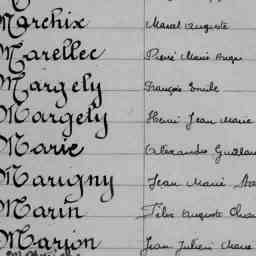 Marchix Marcel Auguste
Marellec Pierre Marie Ange
Margely François Emile
Margely Henri Jean Marie
Marie Alexandre
Marigny Jean Marie
Marin Félix Auguste
Marion Jean Julien Marie